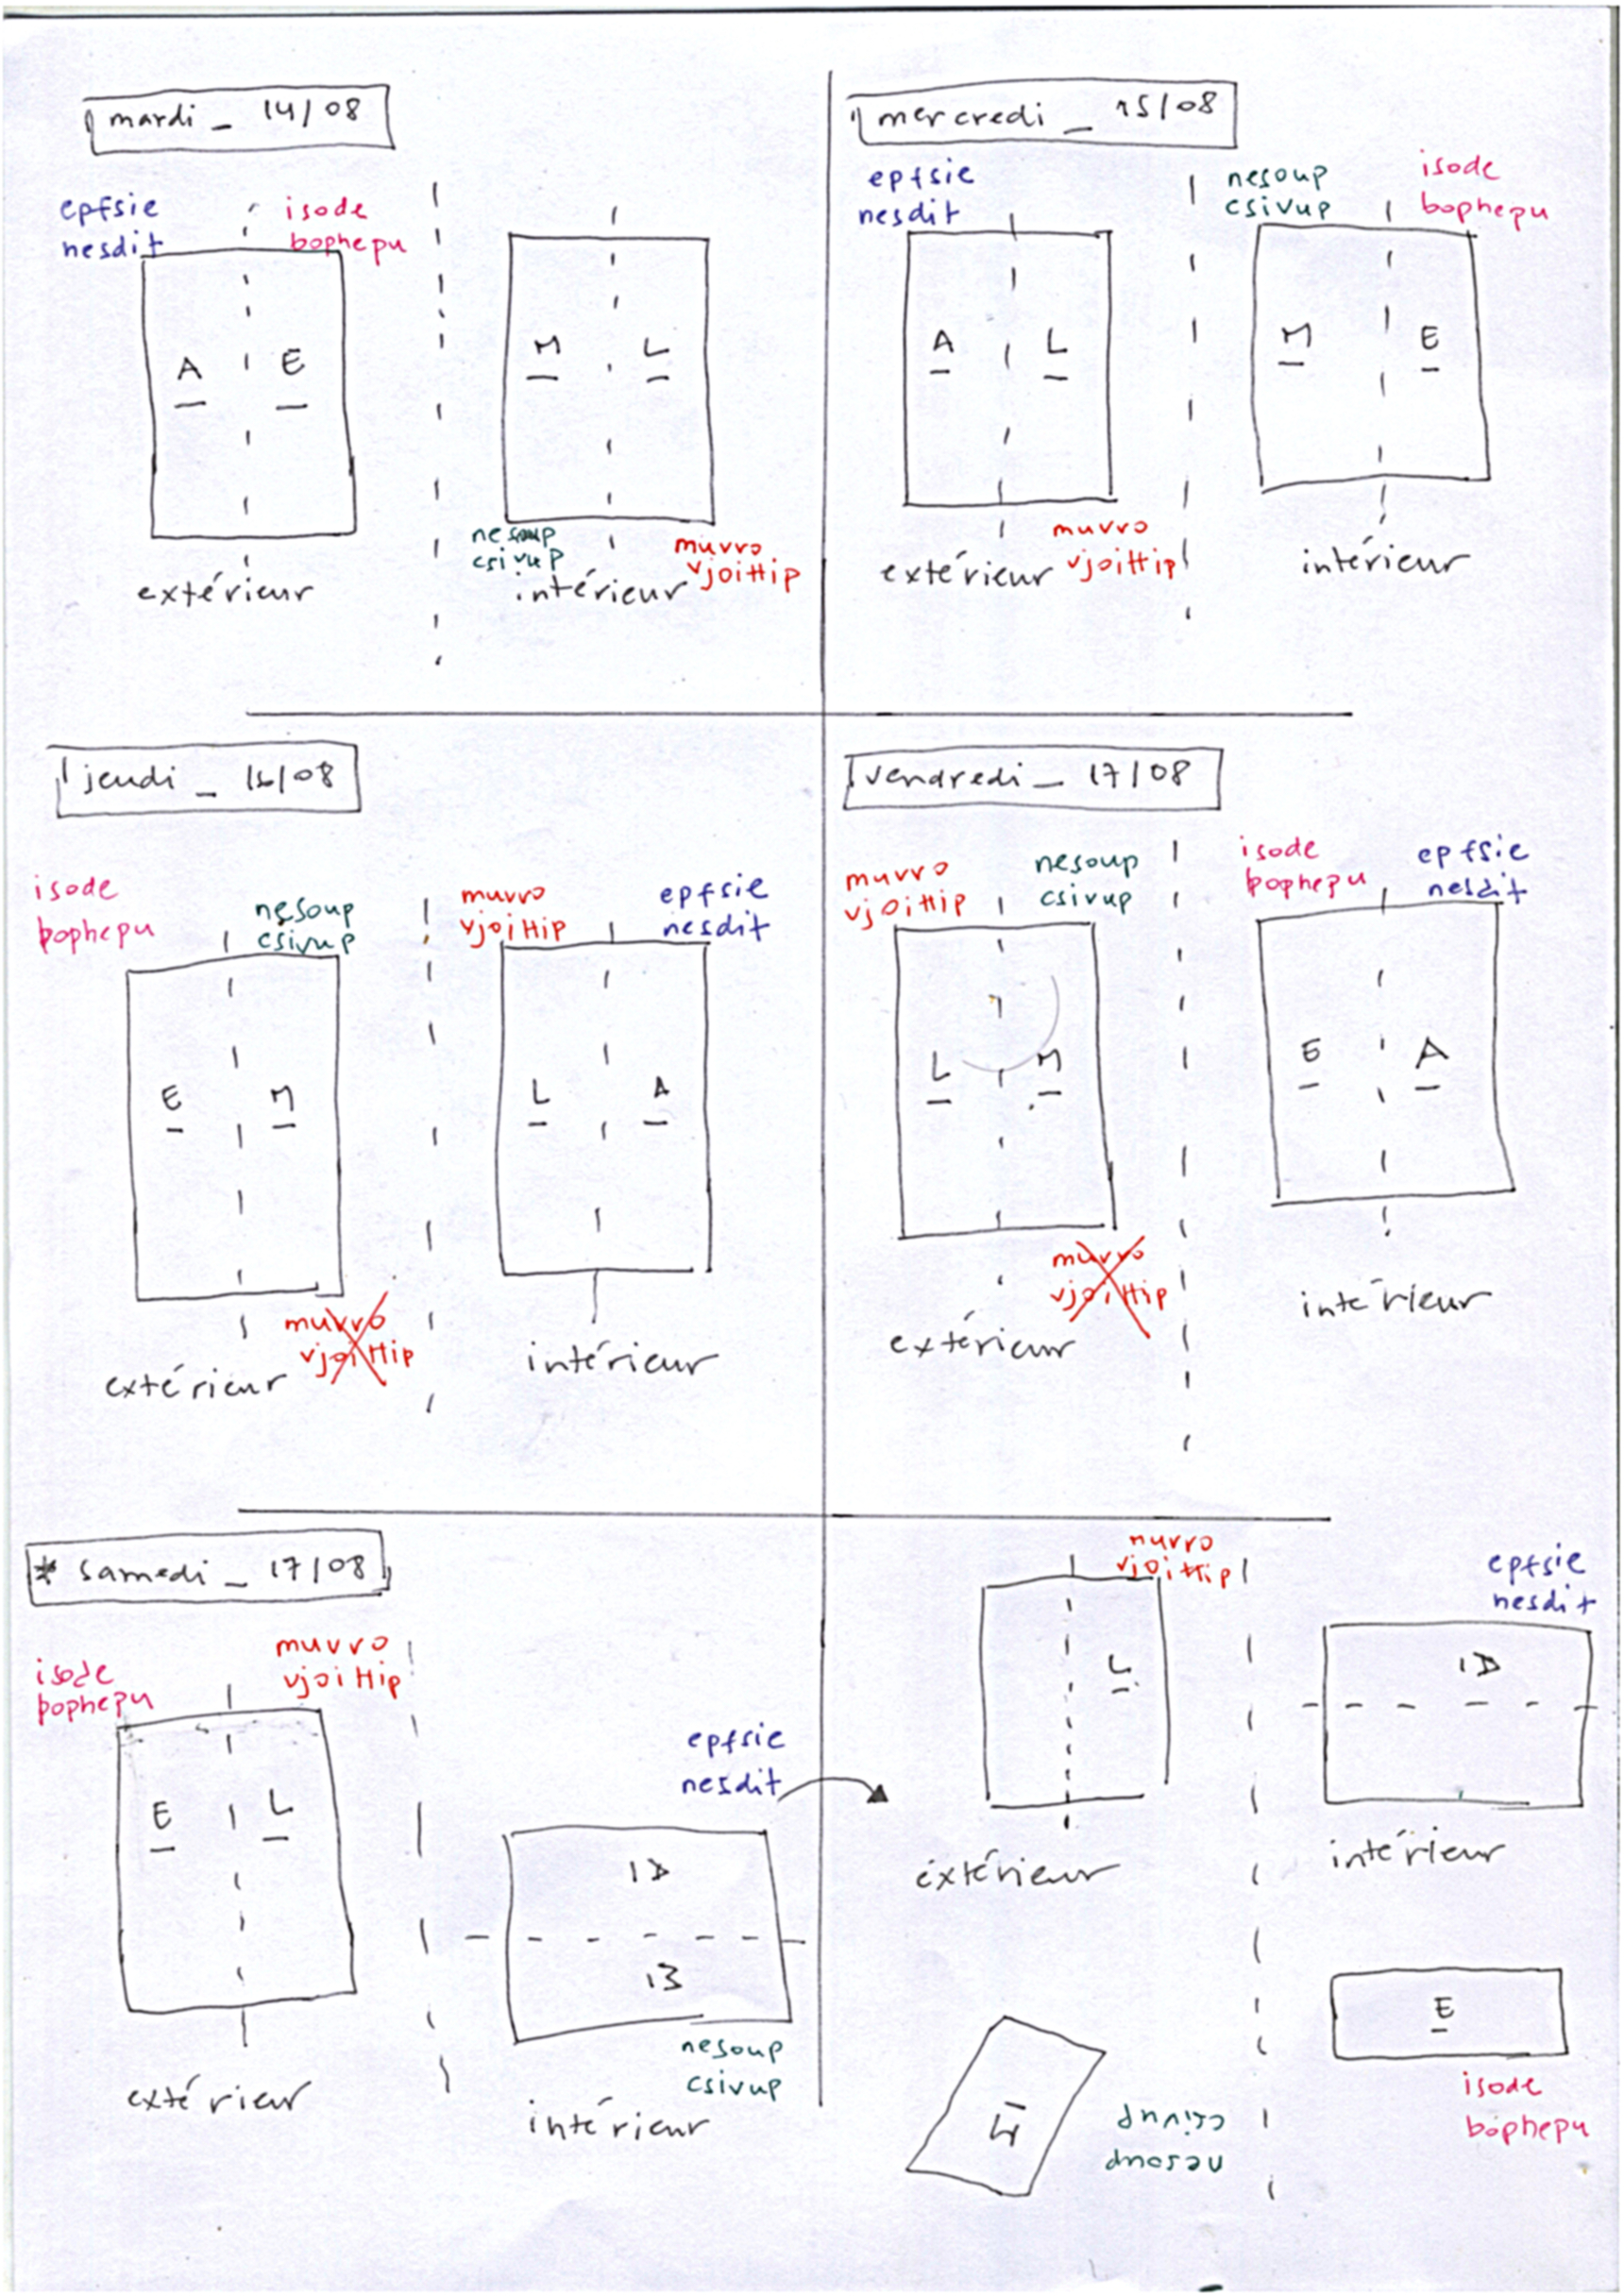 mardi _ 14/08
epfsie
nesdit
isode
bophepu
A
E
extérieur
M
L
nesoup
csivup
muvro
vjoittip
intérieur
mercredi _ 15/08
epfsie
nesdit
A
L
muvro
vjoittip
extérieur
nesoup
csivup
isode
bophepu
M
E
intérieur
jeudi _ 16/08
isode
bophepu
nesoup
csivup
E
M
muvro
vjoittip
extérieur
muvro
vjoittip
epfsie
nesdit
L
A
intérieur
vendredi _ 17/08
muvro
vjoittip
nesoup
csivup
L
M
muvro
vjoittip
extérieur
isode
bophepu
epfsie
nesdit
E
A
intérieur
* samedi _ 17/08
isode
bophepu
muvro
vjoittip
E
L
extérieur
epfsie
nesdit
nesoup
csivup
intérieur
muvro
vjoittip
L
extérieur
epfsie
nesdit
intérieur
nesoup
csivup
E
isode
bophepu